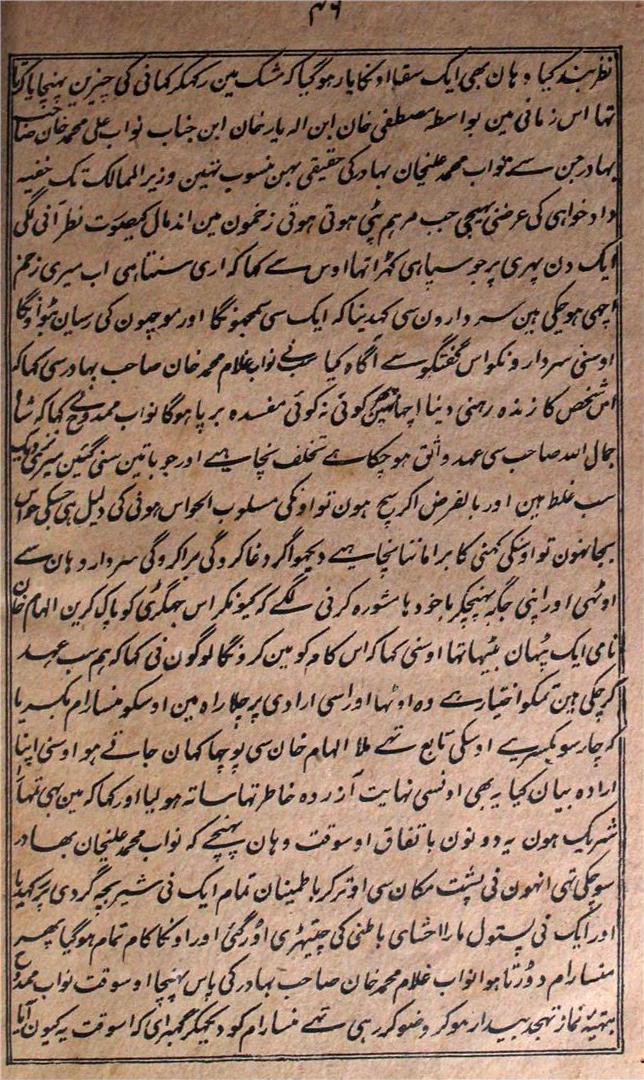 ۴۶
نظر بند کیا وہان بھی ایک سقا اونکا یار ہوگیا کہ مشک مین رکھکر کھانی کی چیزین پہنچایا کرتا
تھا اس زمانی مین بواسطہ مصطفی خان ابن الہ یار خان ابن جناب نواب علی محمد خان صاحب
بہادر جن سے نواب محمد علیخان بہادر کی حقیقی بہن منسوب تہین وزیر الممالک تک خفیہ
داد خواہی کی عرضی بہیجی جب مرہم پٹی ہوتی ہوتی زخمون مین اندمال کیصورت نظر آنی لگی
ایک دن پہری پر جو سپاہی کہڑا تہا اوس سے کہا کہ اری سنتا ہی اب میری زخم
اچہی ہو چکی ہین سردارون سی کہدینا کہ ایک ایک سی سمجہونگا اور موچہون کی رسیان بٹواونگا
اوسنی سردارونکو اس گفتگو سے آگاہ کیا سب نے نواب غلام محمد خان صاحب بہادر سی کہا کہ
اس شخص کا زندہ رہنی دینا اچہا نہین کوئی نہ کوئی مفسدہ برپا ہوگا نواب ممدوح نے کہا کہ شاہ
جمال اللہ صاحب سی عہد واثق ہو چکا ہے تخلف نچاہیے اور جو باتین سنی گئین میری نزدیک
سب غلط ہین اور بالفرض اگر سچ ہون تو اونکی مسلوب الحواس ہونی کی دلیل ہی جسکی حواس
بجا نہون تو اوسکی کہنی کا برا ماننا نچاہیے دیکہو اگر دغا کروگی برا کروگی سردار وہان سے
اوٹہی اور اپنی جگہ پہنچکر باخودہا مشورہ کرنی لگے کہ کیونکر اس جہگڑی کو پاک کرین الہام خان
نامی ایک پٹہان بیٹہا تہا اوسنی کہا کہ اس کام کو مین کرونگا لوگون نی کہا کہ ہم سب عہد
کر چکی ہین تمکو اختیار ہے وہ اوٹہا اور اسی ارادی پر چلا راہ مین اوسکو منسارام بکسریا
کہ چار سو بکسریے اوسکی تابع تہے ملا الہام خان سی پوچہا کہان جاتے ہو اوسنی اپنا
ارادہ بیان کیا یہ بھی اونسی نہایت آزردہ خاطر تہا ساتہ ہو لیا اور کہا کہ مین بہی تمہارا
شریک ہون یہ دونون باتفاق اوسوقت وہان پہنچے کہ نواب محمد علیخان بہادر
سو چکی تہی انہون نی پشت مکان سی اوترکر باطمینان تمام ایک نی شیر بچہ گردی پر رکہدیا
اور ایک نی پستول مارا احشای باطنی کی چیتہڑی اوڑ گئی اور اونکا کام تمام ہوگیا پہر
منسارام دوڑتا ہوا نواب غلام محمد خان صاحب بہادر کی پاس پہنچا اوسوقت نواب ممدوح
بتہیۂ نماز تہجد بیدار ہوکر وضو کر رہی تہے منسارام کو دیکہکر گہبرای کہ اسوقت یہ کیون آیا